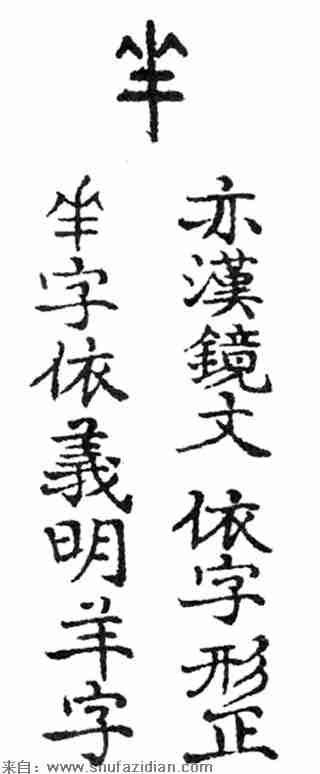 亦漢鏡文 依字形正
字依義明羊字
来自：www.shufazidian.com